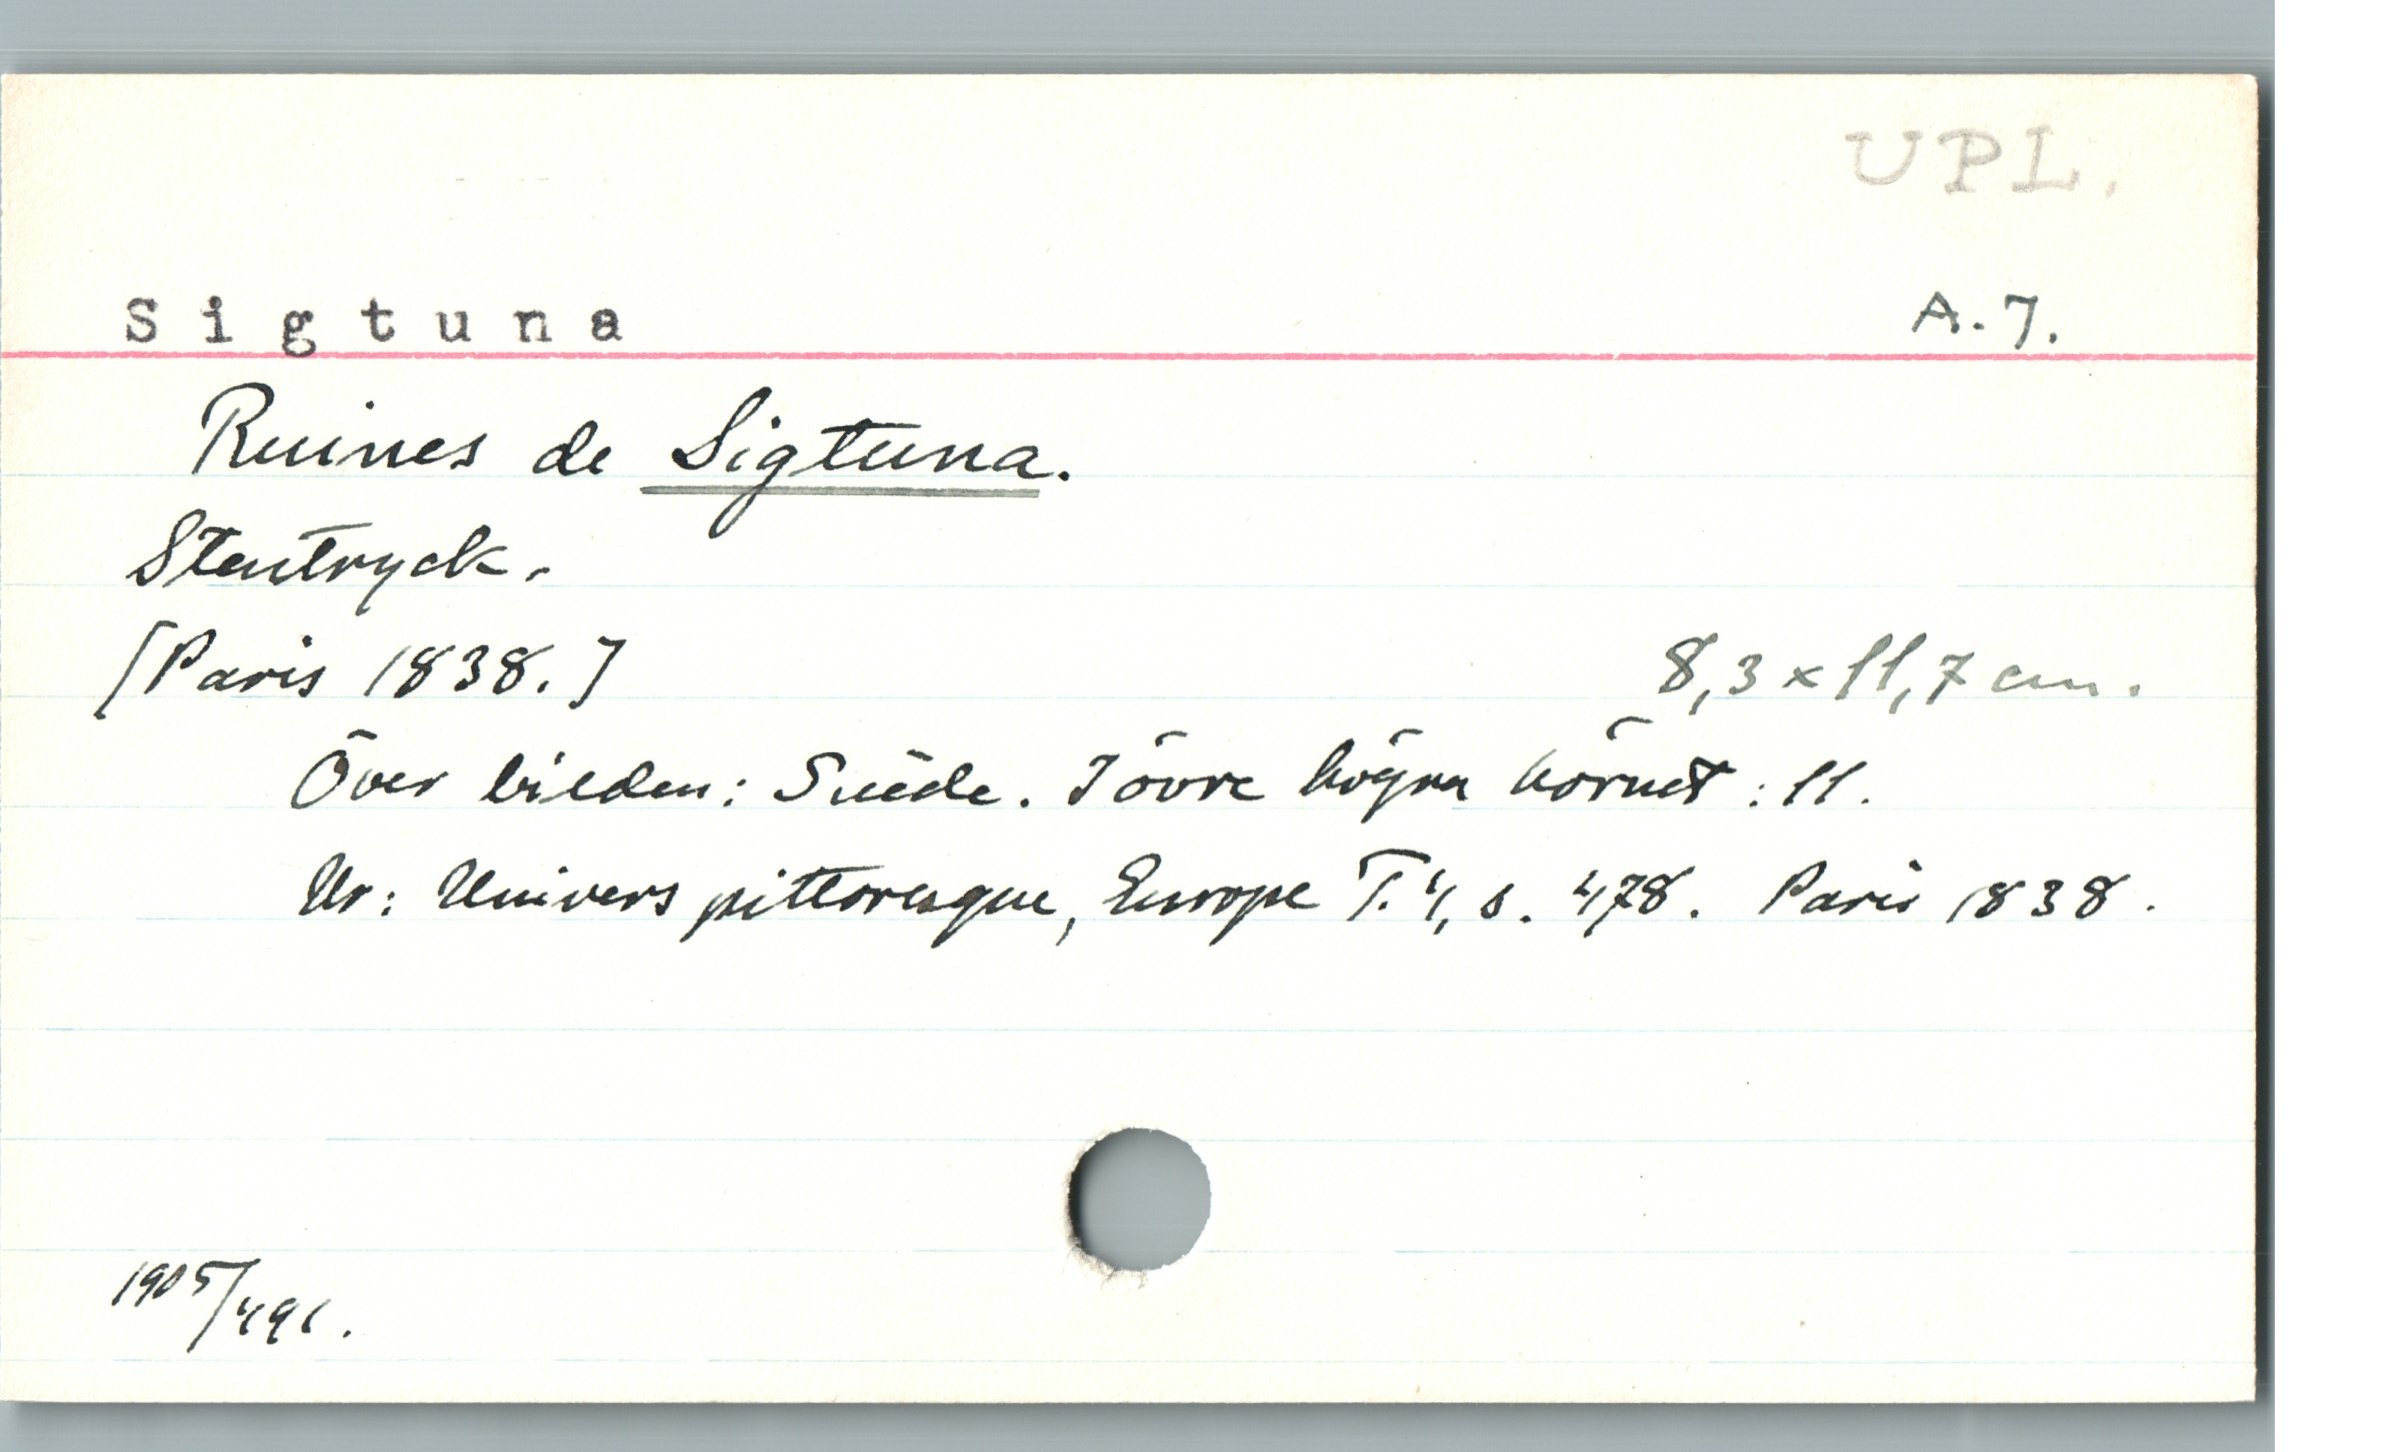 UPL.
Sigtuna A.7.
Ruines de Sigtuna.
Stentryck.
[Paris 1838.] 8,3 x 11,7 cm.
Över bilden: Suède. I övre högra hörnet: 11.
Ur: Univers pittoresque, Europe T. 4, s. 478. Paris 1838.
1905/491.